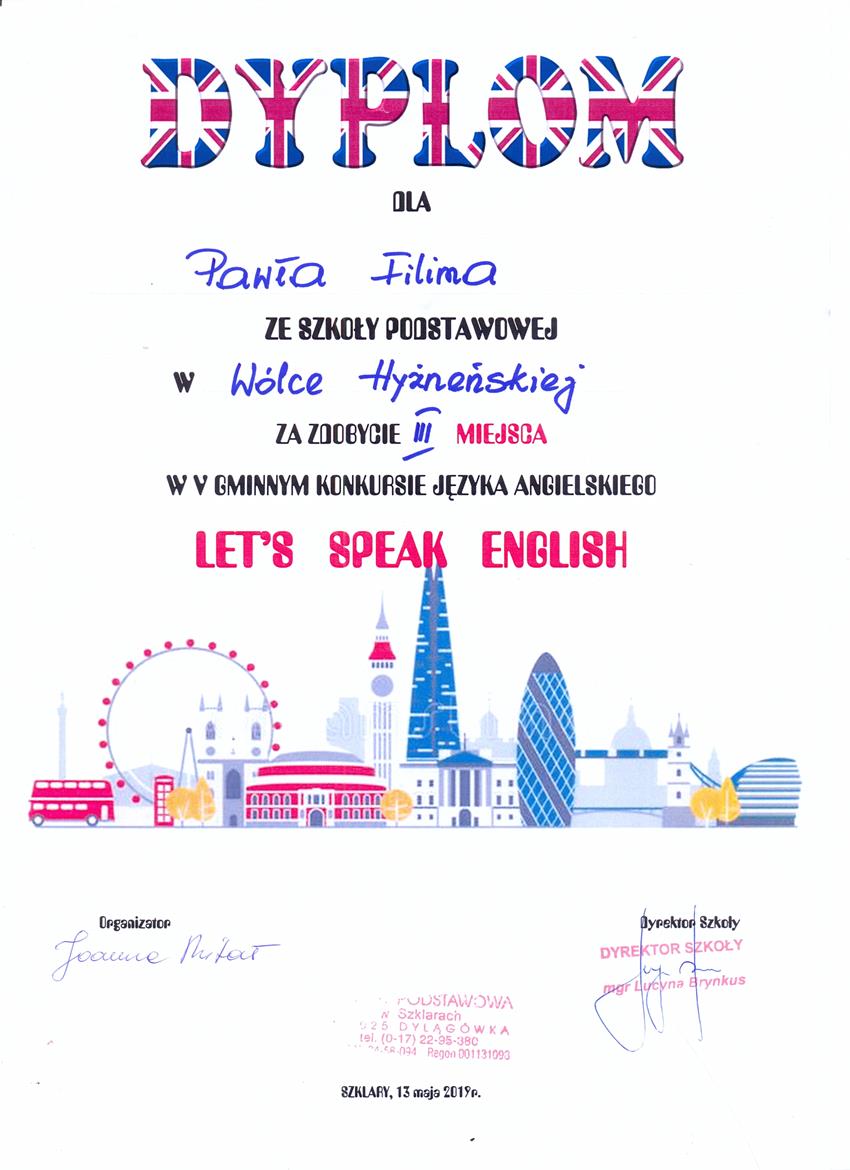 DYPLOM
DLA
Pawła Filima
ZE SZKOŁY PODSTAWOWEJ
W Wólce Hyżneńskiej
ZA ZDOBYCIE III MIEJSCA
W V GMINNYM KONKURSIE JĘZYKA ANGIELSKIEGO
LET'S SPEAK ENGLISH
Organizator
Joanna
Dyrektor Szkoły
DYREKTOR SZKOŁY
mgr Lucyna Brynkus
PODSTAWOWA
w Szklarach
925 DYLĄGÓWKA
tel. (0-17) 22-95-380
Regon 001131093
SZKLARY, 13 maja 2019r.